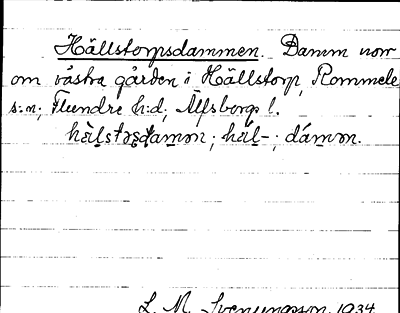 Hällstorpsdammen. Damm norr
om västra gården i Hällstorp, Rommele
s:n, Flundre h:d, Älfsborgs l.
hälstɔṣdamən; häl-; dámən.
L. M. Svenungsson. 1934